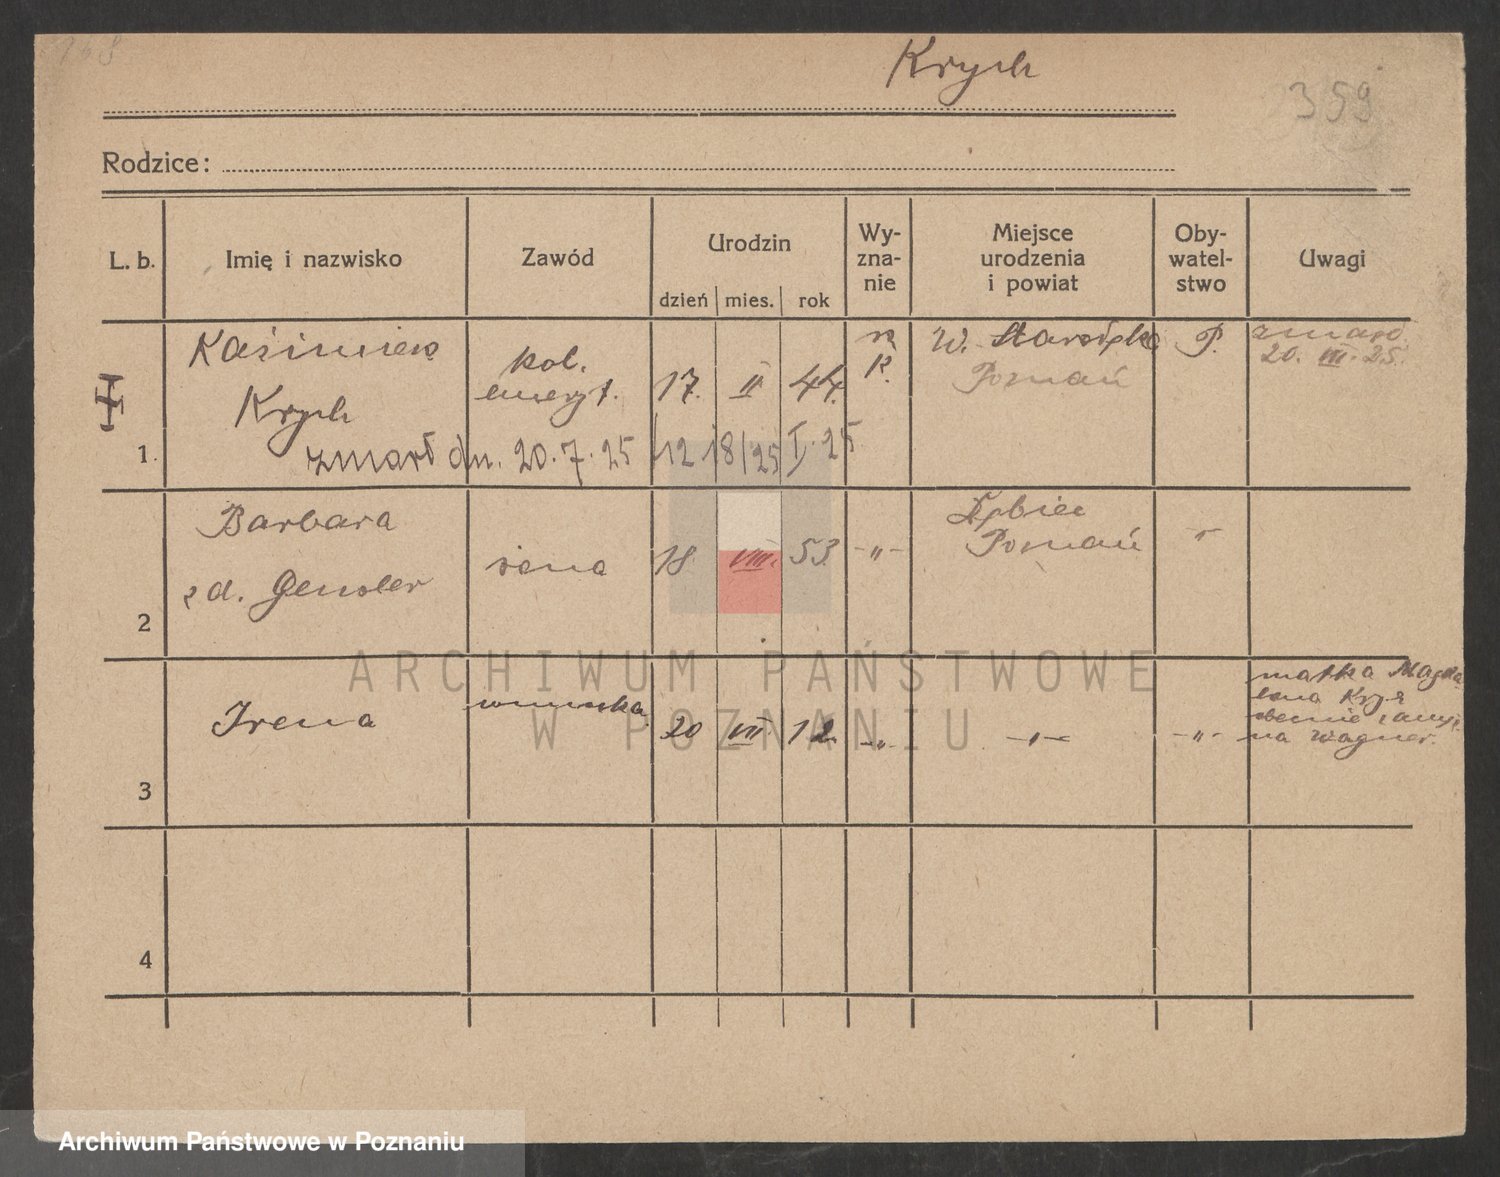 Krych
359
Rodzice:
L. b.
Imię i nazwisko
Zawód
Urodzin
dzień mies. rok
Wy-
zna-
nie
Miejsce
urodzenia
i powiat
Oby-
watel-
stwo
Uwagi
1.
Kazimierz
Krych
kol.
emeryt.
17. II 44.
R.
K.
W. Starołęka
Poznań
P.
zmarł
20. VII. 25.
zmarł dn. 20.7.25
2
Barbara
z d. Gensler
żona
18. VIII. 53.
-"-
Dębiec
Poznań
"
3
Irena
wnuczka
20 VII 12.
-"-
-"-
-"-
matka Magda
lena
obecnie zamęż
na Wagner.
4
ARCHIWUM PAŃSTWOWE
W POZNANIU
Archiwum Państwowe w Poznaniu